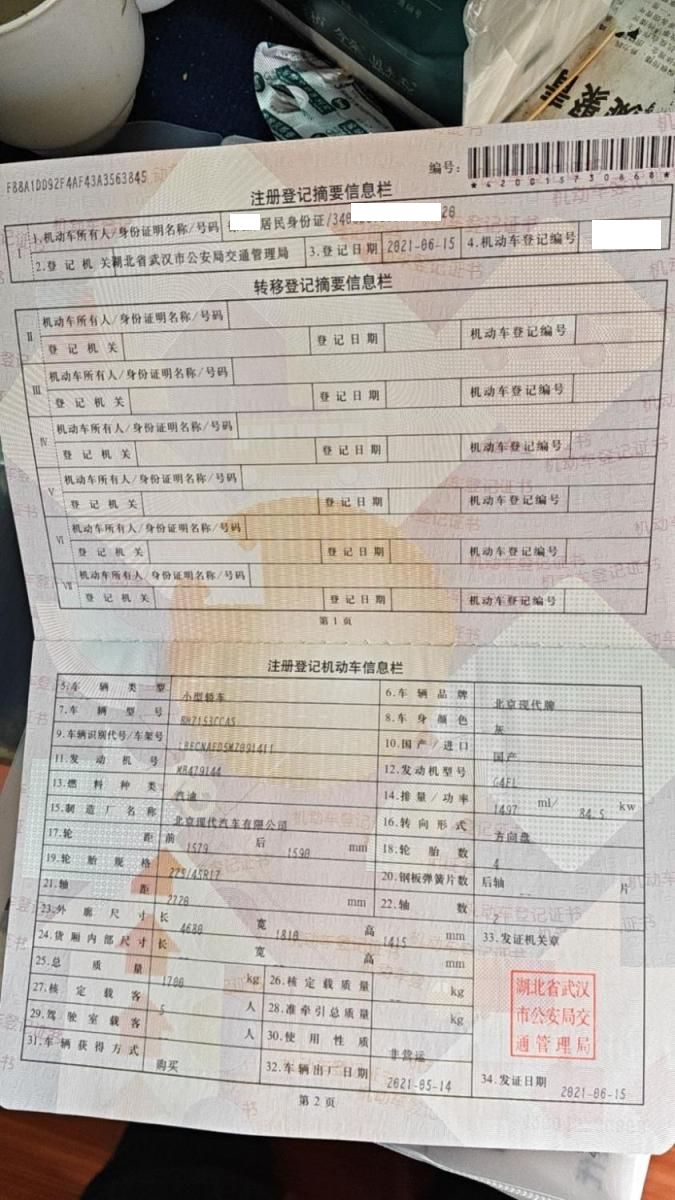 FB8A1DD92F4AF43A3563845
编号：
*420015730668*
注册登记摘要信息栏
I 1.机动车所有人/身份证明名称/号码 居民身份证/340 20
2.登记机关 湖北省武汉市公安局交通管理局 3.登记日期 2021-06-15 4.机动车登记编号
转移登记摘要信息栏
II 机动车所有人/身份证明名称/号码
登记机关 登记日期 机动车登记编号
III 机动车所有人/身份证明名称/号码
登记机关 登记日期 机动车登记编号
IV 机动车所有人/身份证明名称/号码
登记机关 登记日期 机动车登记编号
V 机动车所有人/身份证明名称/号码
登记机关 登记日期 机动车登记编号
VI 机动车所有人/身份证明名称/号码
登记机关 登记日期 机动车登记编号
VII 机动车所有人/身份证明名称/号码
登记机关 登记日期 机动车登记编号
第1页
注册登记机动车信息栏
5.车辆类型 小型轿车 6.车辆品牌 北京现代牌
7.车辆型号 BH7153CCAS 8.车身颜色 灰
9.车辆识别代号/车架号 LBECNAFD5MZ091411 10.国产/进口 国产
11.发动机号 MB479144 12.发动机型号 G4FL
13.燃料种类 汽油 14.排量/功率 1497 ml/ 84.5 kw
15.制造厂名称 北京现代汽车有限公司 16.转向形式 方向盘
17.轮距 前 1579 后 1590 mm 18.轮胎数 4
19.轮胎规格 225/45R17 20.钢板弹簧片数 后轴 -- 片
21.轴距 2720 mm 22.轴数 2
23.外廓尺寸 长 4680 宽 1810 高 1415 mm 33.发证机关章
24.货厢内部尺寸 长 宽 高 mm
25.总质量 1700 kg 26.核定载质量 -- kg
27.核定载客 5 人 28.准牵引总质量 kg
29.驾驶室载客 人 30.使用性质 非营运
31.车辆获得方式 购买 32.车辆出厂日期 2021-05-14 34.发证日期 2021-06-15
湖北省武汉
市公安局交
通管理局
第2页